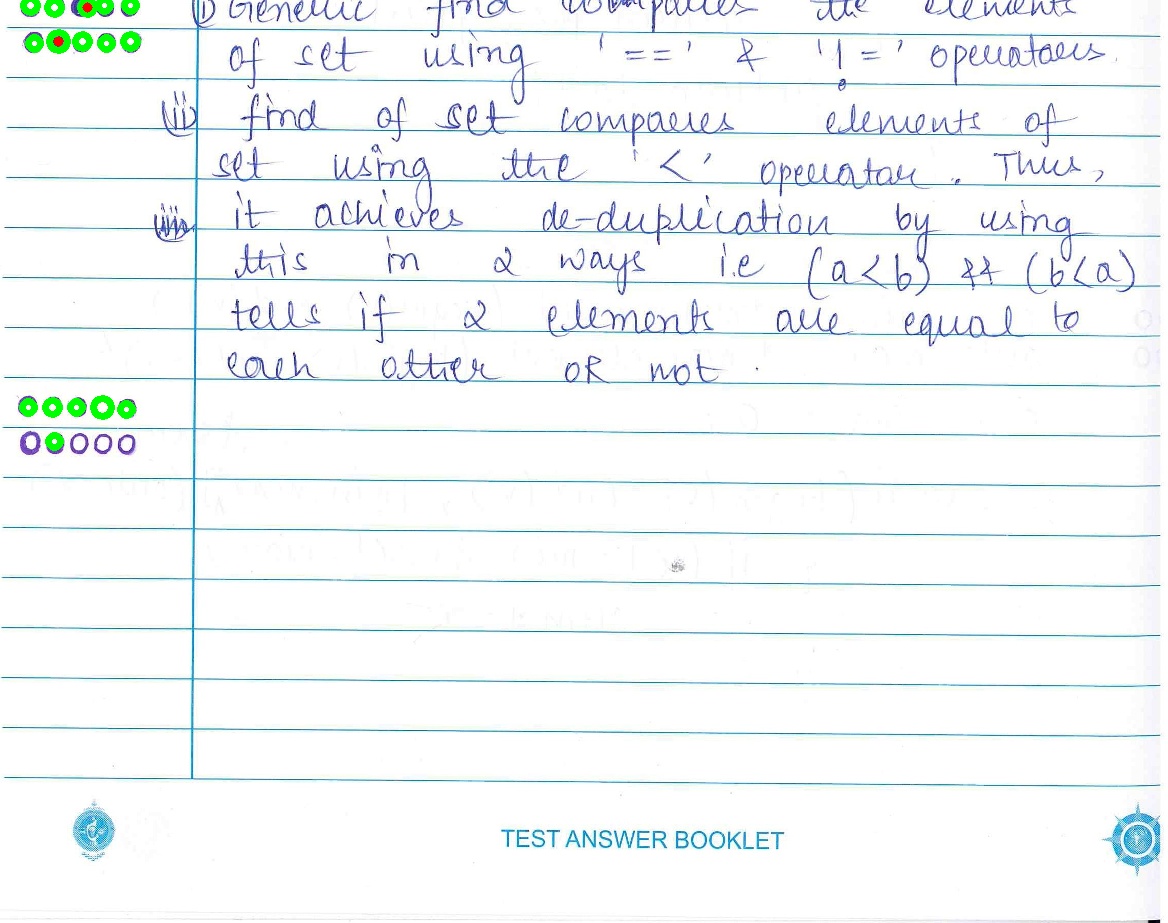 (i) Generic find compares the elements
of set using '==' & '!=' operators.
(ii) find of set compares elements of
set using the '<' operator. Thus,
(iii) it achieves de-duplication by using
this in 2 ways i.e (a<b) && (b<a)
tells if 2 elements are equal to
each other OR not.
TEST ANSWER BOOKLET